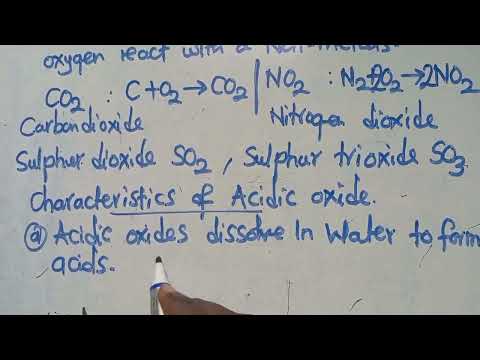 oxygen react with a Non-metals.
CO2 : C+O2→CO2 | NO2 : N2+2O2→2NO2
Carbondioxide Nitrogen dioxide
Sulphur dioxide SO2, Sulphur trioxide SO3.
Characteristics of Acidic oxide.
@ Acidic oxides dissolve In Water to form
acids.